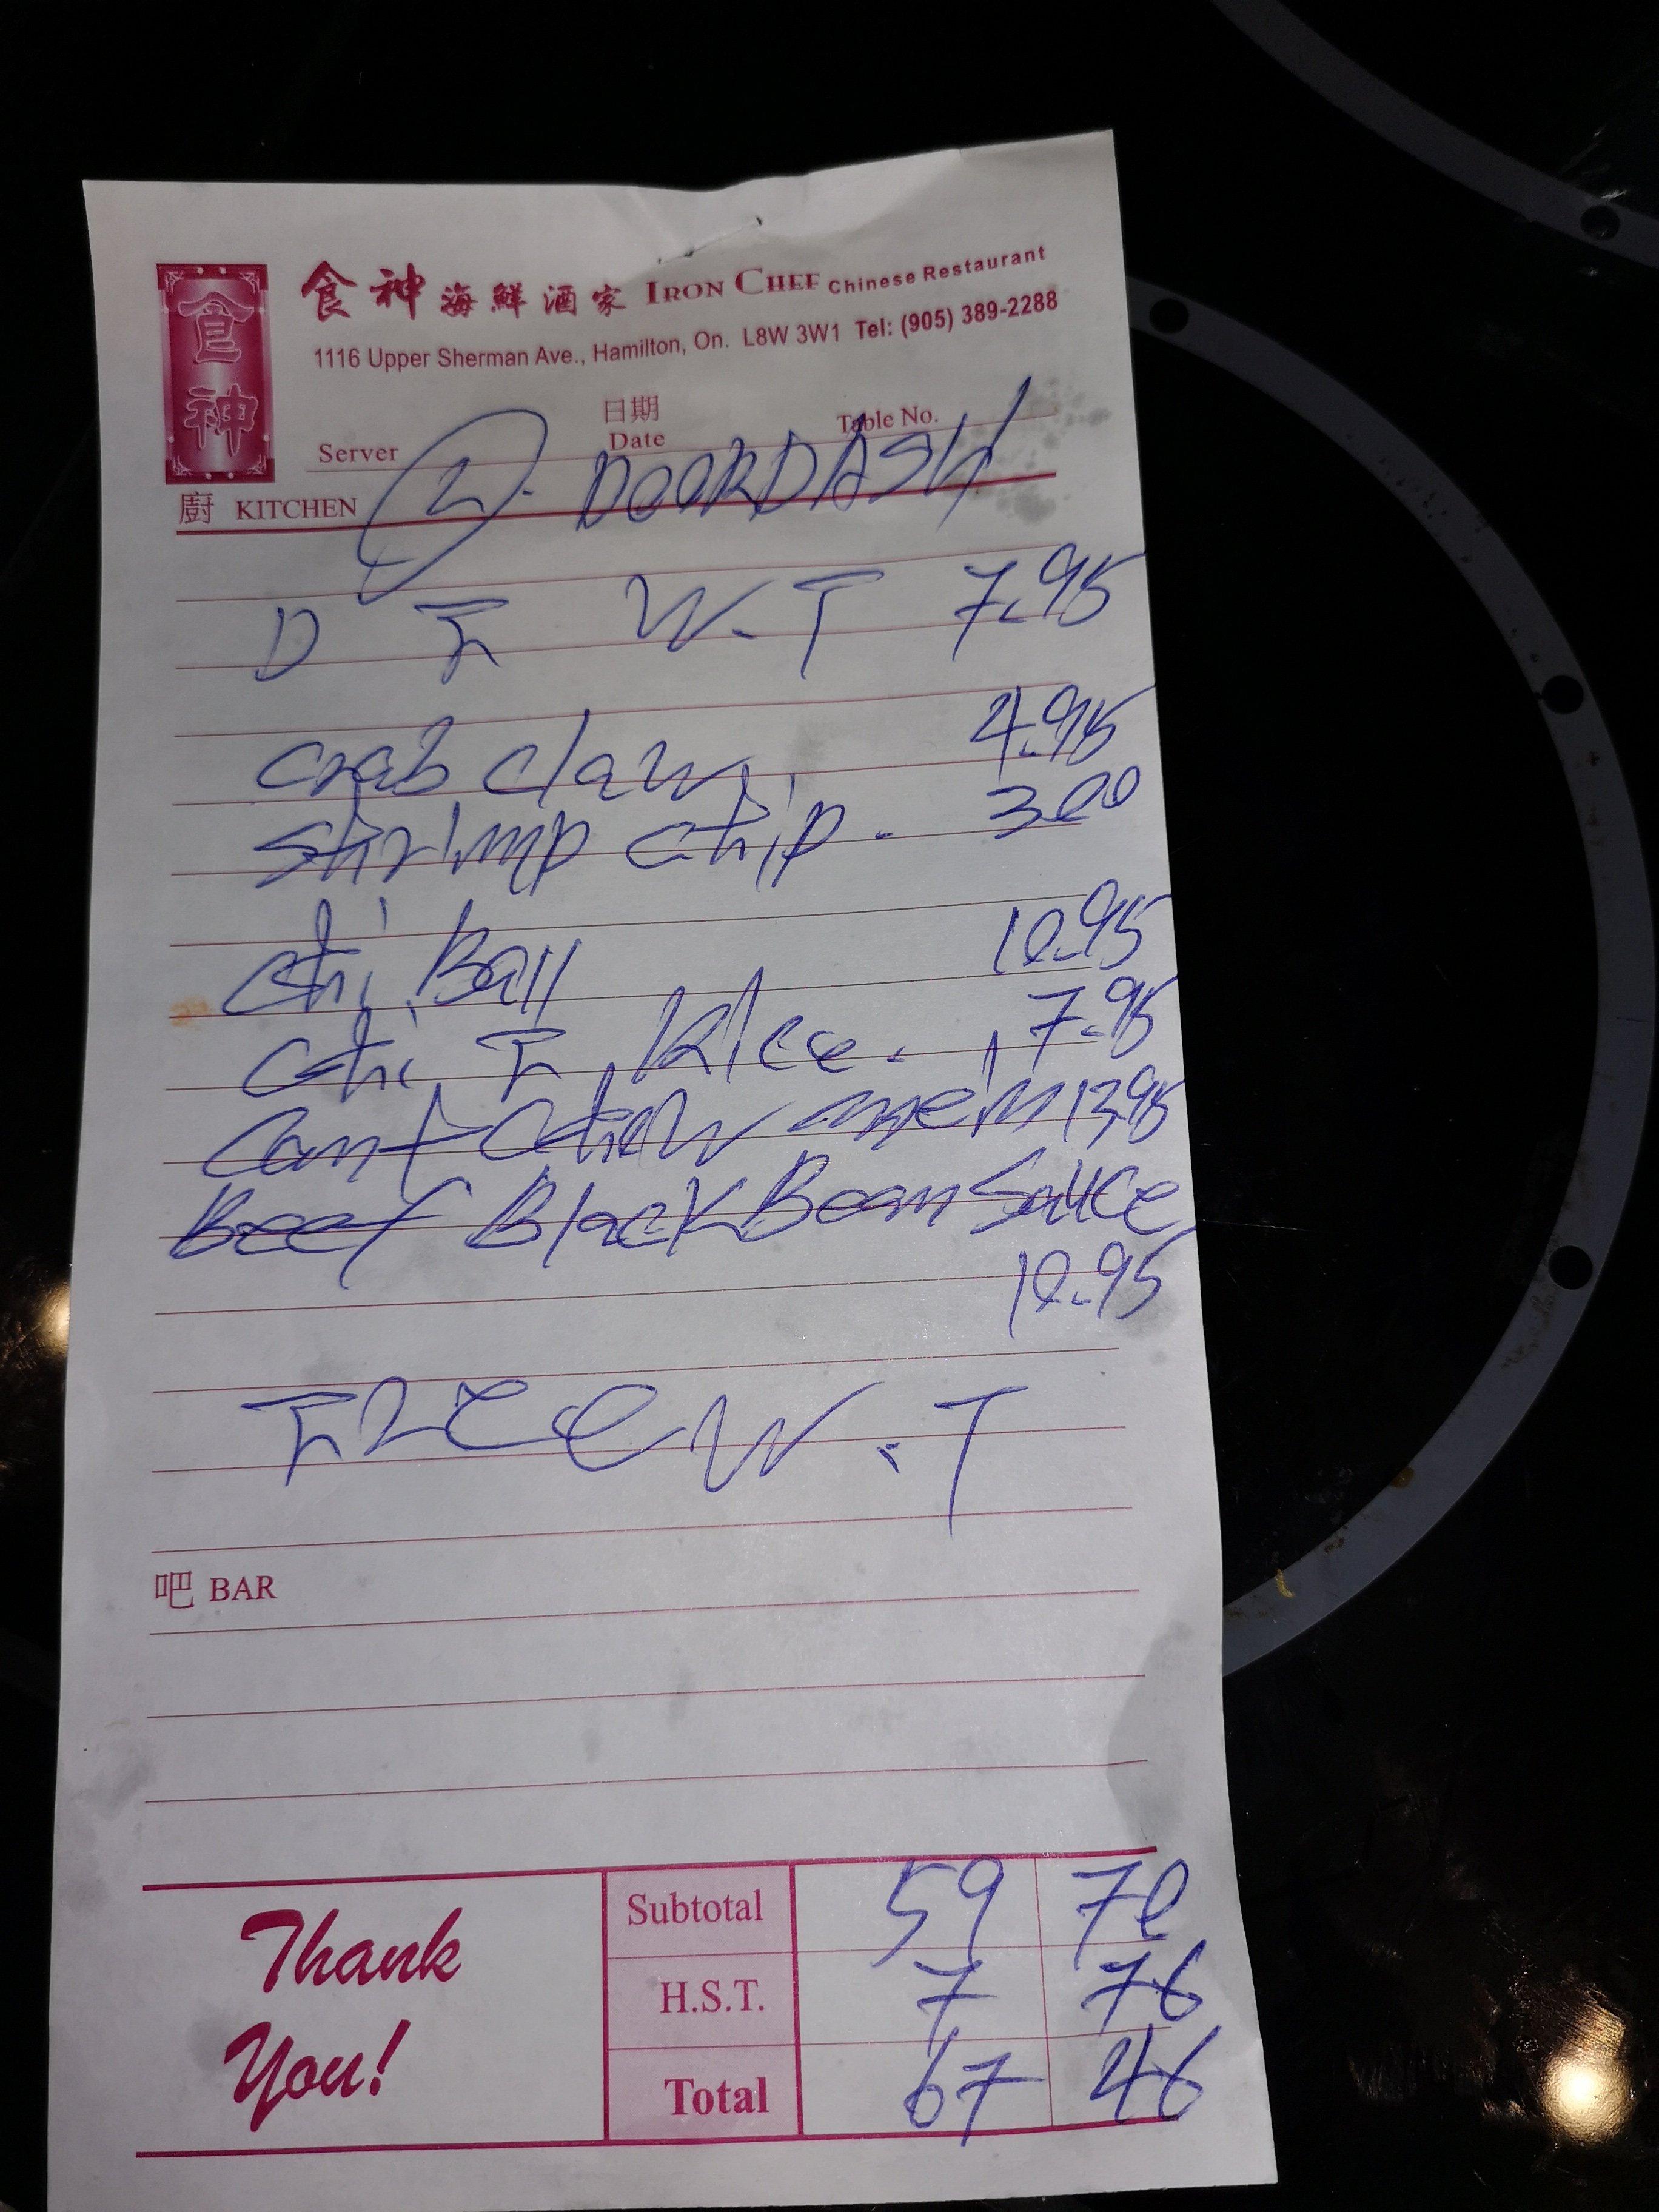 食神
食神海鮮酒家 IRON CHEF Chinese Restaurant
1116 Upper Sherman Ave., Hamilton, On. L8W 3W1 Tel: (905) 389-2288
Server 日期 Date Table No.
廚 KITCHEN 2. DOORDASH
D F W.T 7.95
crab claw 4.95
shrimp chip. 3.00
chi Ball 10.95
chi F Rice. 7.95
Cant chow mein 13.95
Beef Black Bean Sauce
10.95
FREE W.T
吧 BAR
Thank You!
Subtotal 59 70
H.S.T. 7 76
Total 67 46